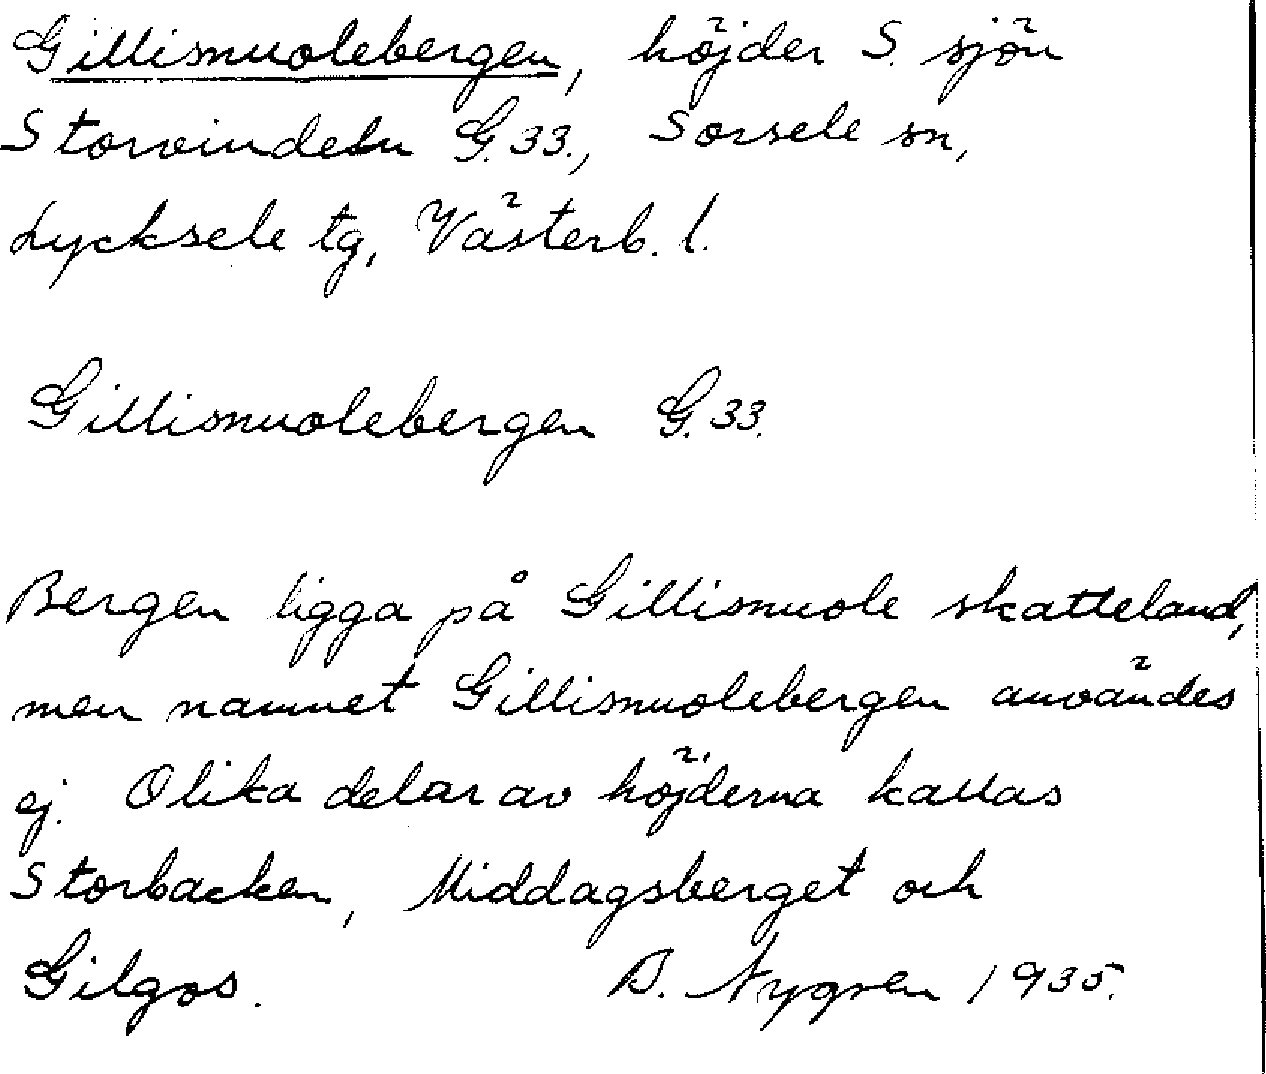 Gillismuolebergen, höjder S. sjön
Storvindeln G.33., Sorsele sn,
Lycksele tg, Västerb. l.
Gillismuolebergen G.33.
Bergen ligga på Gillismuole skatteland,
men namnet Gillismuolebergen användes
ej. Olika delar av höjderna kallas
Storbacken, Middagsberget och
Gilgos. B. Nygren 1935.